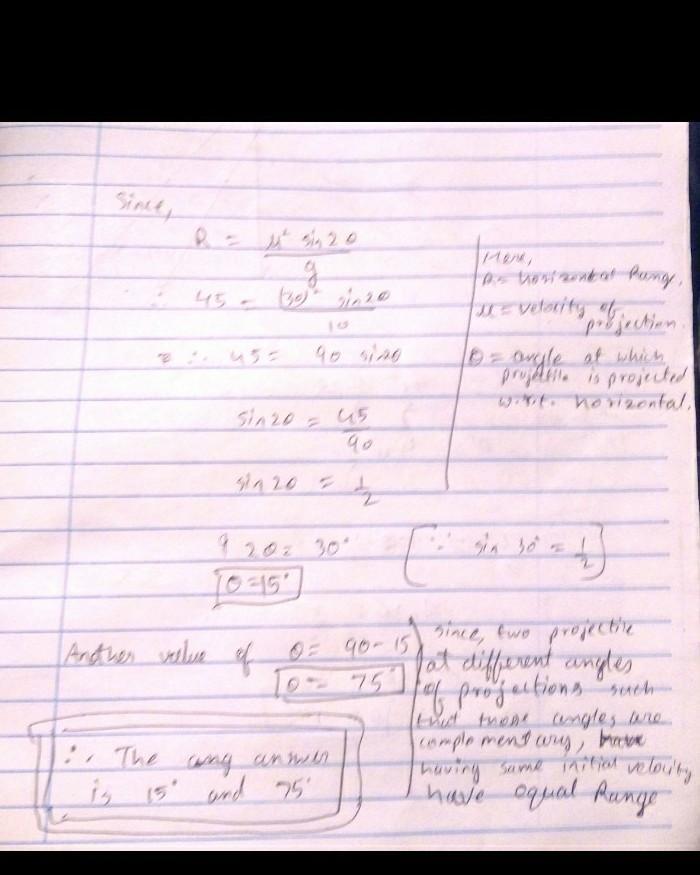 Since,
R = u² sin2θ
g
∴ 45 = (30)² sin2θ
10
∴ 45 = 90 sin2θ
sin2θ = 45
90
sin2θ = 1
2
2θ = 30°
[∵ sin 30° = 1/2]
θ=15°
Here,
R = horizontal Range,
u = velocity of
projection.
θ = angle at which
projectile is projected
w.r.t. horizontal.
Another value of θ = 90-15
θ = 75°
since, two projectile
at different angles
of projections such
that those angles are
complementary,
having same initial velocity
have equal Range
∴ The ang answer
is 15° and 75°